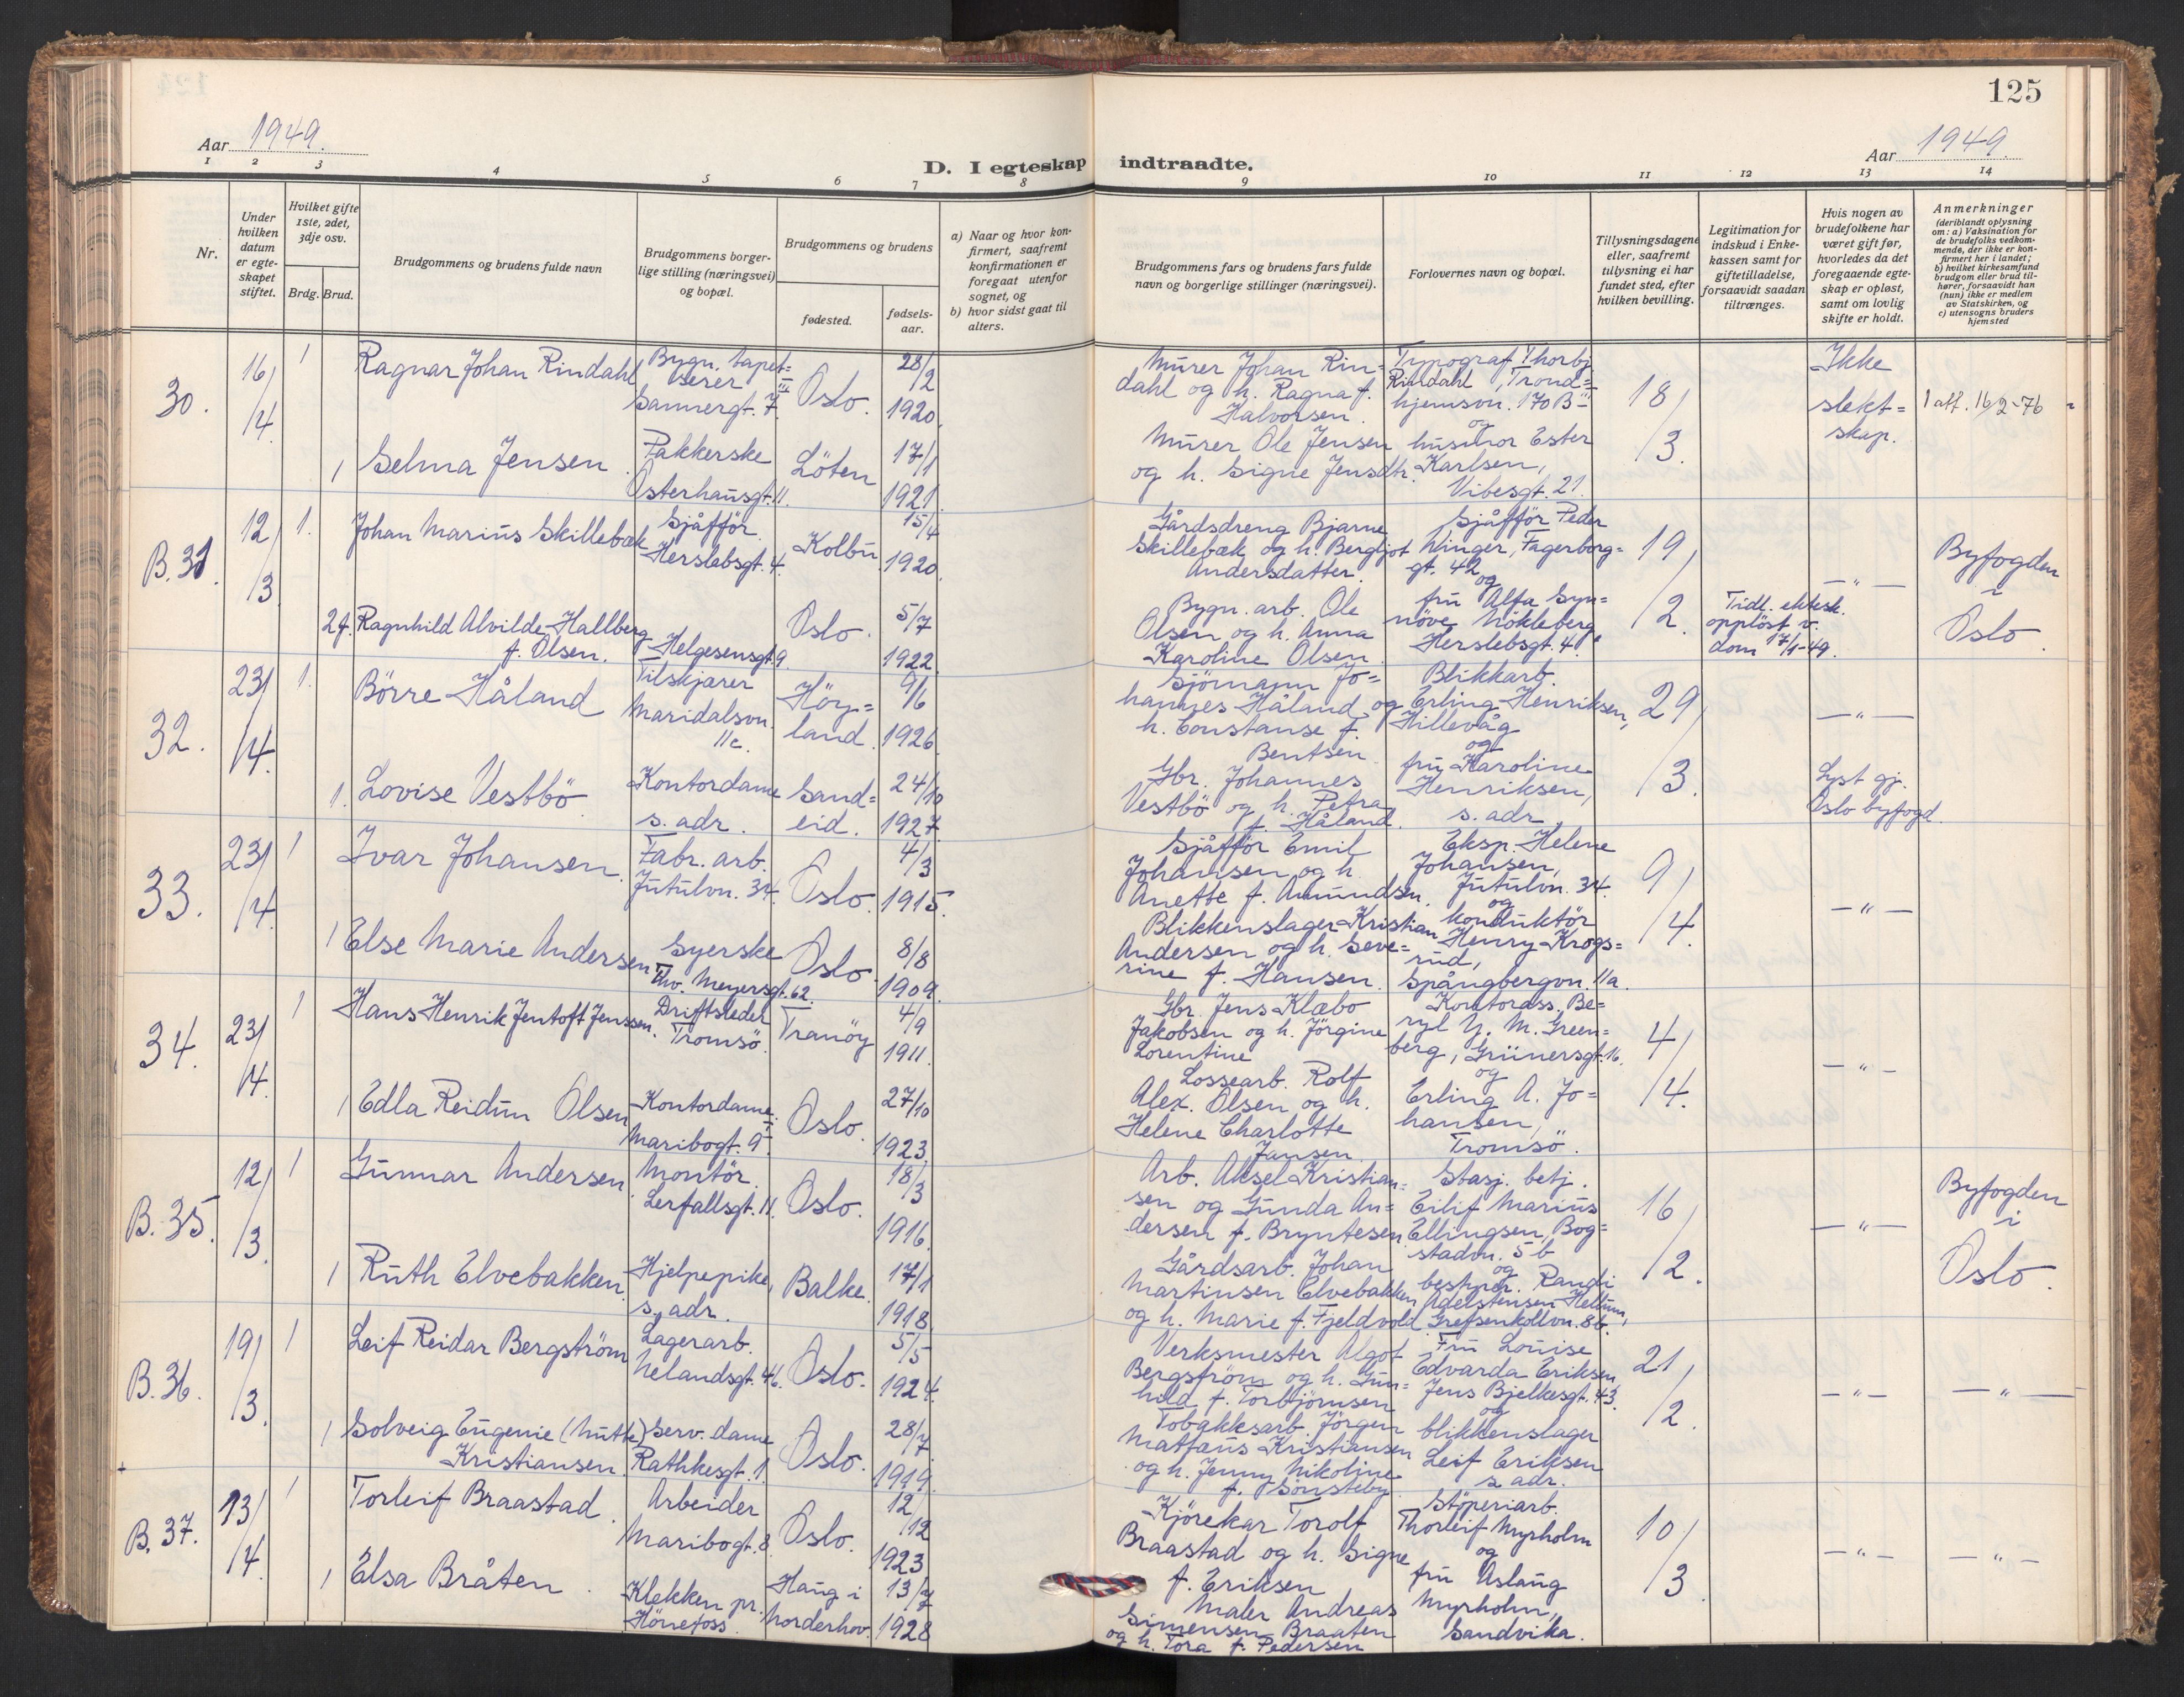 125
Aar 1949.
D. I egteskap indtraadte.
Aar 1949.
1 2 3 4 5 6 7 8 9 10 11 12 13 14
Nr.
Under hvilken datum er egteskapet stiftet.
Hvilket gifte 1ste, 2det, 3dje osv.
Brdg. Brud.
Brudgommens og brudens fulde navn
Brudgommens borgerlige stilling (næringsvei) og bopæl.
Brudgommens og brudens
fødested.
fødselsaar.
a) Naar og hvor konfirmert, saafremt konfirmationen er foregaat utenfor sognet, og
b) hvor sidst gaat til alters.
Brudgommens fars og brudens fars fulde navn og borgerlige stillinger (næringsvei).
Forlovernes navn og bopæl.
Tillysningsdagene eller, saafremt tillysning ei har fundet sted, efter hvilken bevilling.
Legitimation for indskud i Enkekassen samt for giftetilladelse, forsaavidt saadan tiltrænges.
Hvis nogen av brudefolkene har været gift før, hvorledes da det foregaaende egteskap er opløst, samt om lovlig skifte er holdt.
Anmerkninger
(deriblandt oplysning om: a) Vaksination for de brudefolks vedkommende, der ikke er konfirmert her i landet; b) hvilket kirkesamfund brudgom eller brud tilhører, forsaavidt han (hun) ikke er medlem av Statskirken, og c) utensogns bruders hjemsted
30. 16/4. 1 Ragnar Johan Rindahl Bygn. tapetserer Sannergt. 7 III Oslo. 28/2 1920.
Murer Johan Rindahl og h. Ragna f. Halvorsen.
Typograf Thorbj. Rindahl, Trondhjemsvn. 170 B III og
18/3. Ikke slektskap. 1 att. 16/2-76
1 Selma Jensen. Pakkerske Osterhausgt. 11. Löten 17/1 1921.
Murer Ole Jensen og h. Signe Jensdtr.
husmor Ester Karlsen, Vibesgt. 21.
B. 31. 12/3. 1. Johan Marius Skillebæk Sjåfför. Herslebsgt. 4. Kolbu 15/4 1920.
Gårdsdreng Bjarne Skillebæk og h. Bergljot Andersdatter.
Sjåfför Peder Winger, Fagerborggt. 42 og
19/2. —"— Byfogden i Oslo.
2 f. Ragnhild Alvilde Hallberg f. Olsen. Helgesensgt. 9. Oslo. 5/7 1922.
Bygn. arb. Ole Olsen og h. Anna Karoline Olsen.
fru Alfa Synnöve Nökleberg Herslebsgt. 4.
Tidl. ektesk. opplöst v. dom 17/1-49.
32. 23/4. 1. Börre Håland Tilskjærer Maridalsvn. 11c. Höyland. 9/6 1926.
Sjömann Johannes Håland og h. Constanse f. Bentsen.
Blikkarb. Erling Henriksen, Hillevåg og
29/3. —"—
1. Lovise Vestbö Kontordame s. adr. Sandeid. 24/10 1927.
Gbr. Johannes Vestbö og h. Petra f. Håland.
fru Karoline Henriksen, s. adr.
Lyst gj. Oslo byfogd.
33. 23/4. 1 Ivar Johansen. Fabr. arb. Jutulvn. 34. Oslo. 4/3 1915.
Sjåfför Emil Johansen og h. Anette f. Amundsen.
Eksp. Helene Johansen, Jutulvn. 34. og
9/4. —"—
1 Else Marie Andersen Syerske Thv. Meyersgt. 62. Oslo. 8/8 1909.
Blikkenslager Kristian Andersen og h. Severine f. Hansen.
konduktör Henry Krogsrud, Spångbergvn. 11a.
34. 23/4. 1 Hans Henrik Jentoft Jenssen. Driftsleder Tromsö. Tranöy 4/9 1911.
Gbr. Jens Klæbo Jakobsen og h. Jörgine Lorentine
Kontorass. Beryl Y. M. Greenberg, Grünersgt. 16. og
4/4. —"—
1 Edla Reidun Olsen Kontordame. Maribogt. 9 I. Oslo. 27/10 1923.
Lossearb. Rolf Alex. Olsen og h. Helene Charlotte Jansen.
Erling A. Johansen, Tromsö.
B. 35. 12/3. 1 Gunnar Andersen. Montör. Lerfallsgt. 11. Oslo. 18/3 1916.
Arb. Aksel Kristiansen og Gunda Andersen f. Bryntesen.
Stasj. betj. Eilif Marius Ellingsen, Bogstadvn. 5 b og
16/2. —"— Byfogden i Oslo.
1 Ruth Elvebakken. Hjelpepike, s. adr. Balke. 17/1 1918.
Gårdsarb. Johan Martinsen Elvebakken og h. Marie f. Fjeldvold.
bestyrer. Randi Adelstensen Hellum, Grefsenkollvn. 8b.
B. 36. 19/3. 1 Leif Reidar Bergström Lagerarb. Nelandsgt. 46. Oslo. 5/5 1924.
Verksmester Algot Bergström og h. Gunhild f. Torbjörnsen
Fru Louise Edvarda Eriksen Jens Bjelkesgt. 43. og
21/2. —"— —"—
1 Solveig Eugenie (Mutte) Kristiansen. Serv. dame Rathkesgt. 1. Oslo. 28/7 1919.
Tobakksarb. Jörgen Mattæus Kristiansen og h. Jenny Nikoline f. Sönsteby.
blikkenslager Leif Eriksen s. adr.
B. 37. 13/4. 1 Torleif Braastad. Arbeider Maribogt. 8. Oslo. 12/12 1923
Kjörekar Torolf Braastad og h. Signe f. Eriksen
Støperiarb. Thorleif Myrholm og
10/3. —"— —"—
1 Elsa Bråten. Klekken pr. Hönefoss. Haug i Norderhov. 13/7 1928
Maler Andreas Simensen Braaten og h. Tora f. Pedersen
fru Aslaug Myrholm, Sandvika.